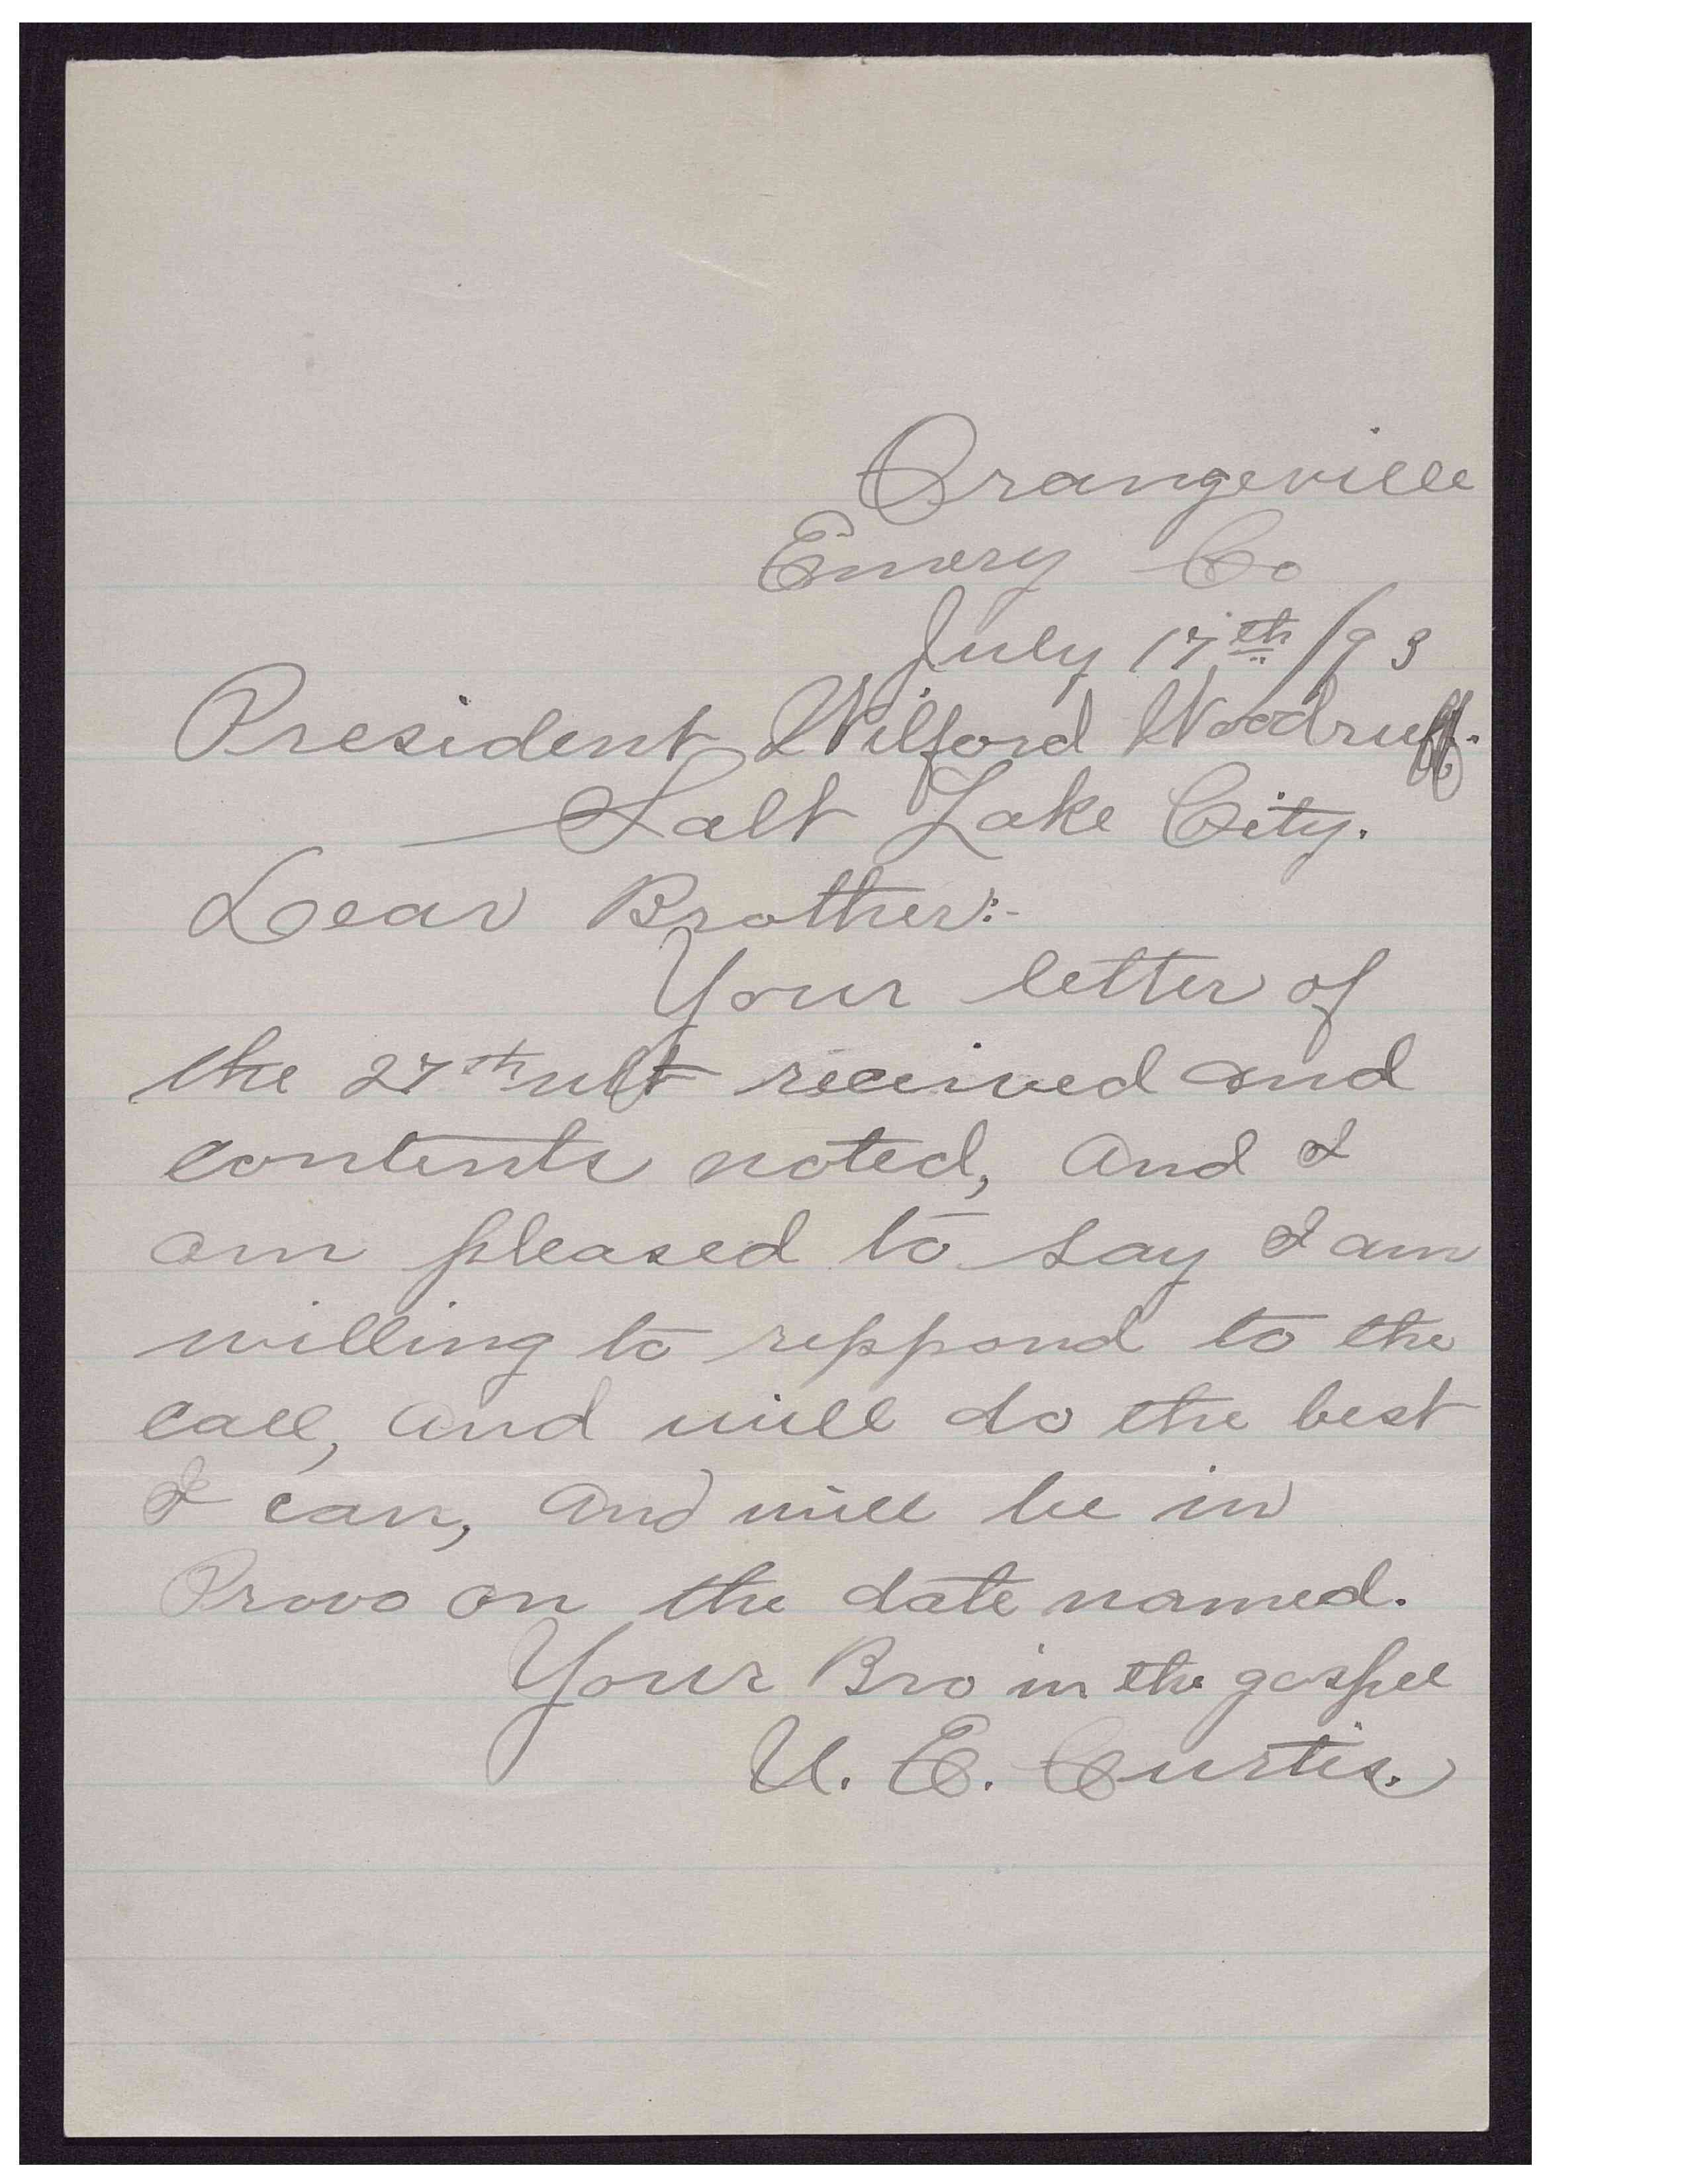 Orangeville
Emery Co
July 17th /93
President Wilford Woodruff.
Salt Lake City.
Dear Brother:-
Your letter of
the 27th ult received and
contents noted, and I
am pleased to say I am
willing to reppond to the
call, and will do the best
I can, and will be in
Provo on the date named.
Your Bro in the gospel
U. E. Curtis.